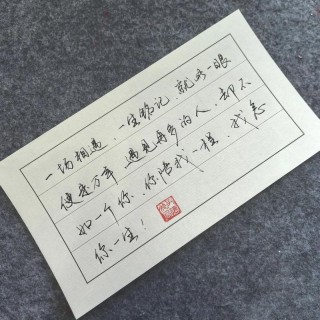 一场相遇、一生铭记、就此一眼
便是万年 遇见再多的人、却不
如一个你、你陪我一程、我念
你一生！